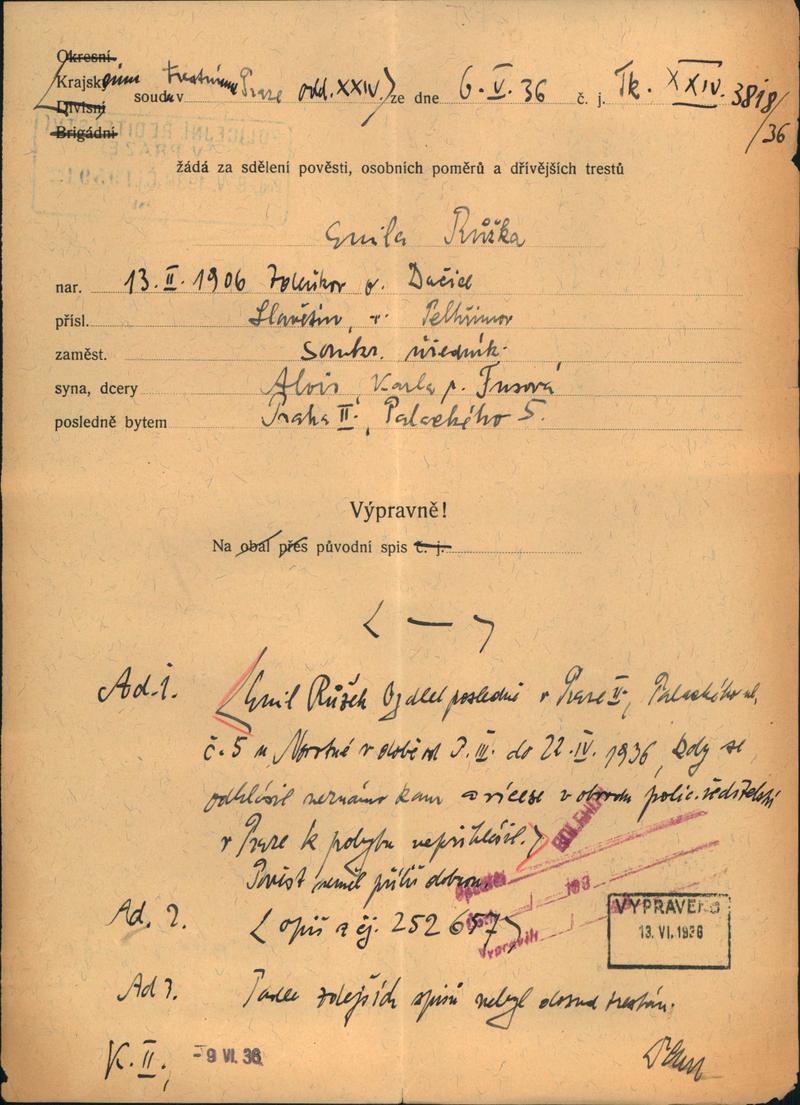 Okresní
Krajským trestním
soudu v Praze odd. XXIV ze dne 6. V. 36 č. j. Tk. XXIV. 3818/36
Divisní
Brigádní
POLICEJNÍ ŘEDITELSTVÍ
V PRAZE
žádá za sdělení pověsti, osobních poměrů a dřívějších trestů
Emila Růžka
nar. 13. II. 1906 o. Dačice
přísl. Slavětín, Pelhřimov
zaměst. soukr. úředník.
syna, dcery Alois, Karla r. Fusová
posledně bytem Praha II., Palackého 5.
Výpravně!
Na obal přes původní spis č. j.
Ad. 1. Emil Růžek bydlel posledně v Praze II., Palackého ul.
č. 5 u v době od 3. III. do 22. IV. 1936, kdy se
odhlásil neznámo kam a více se v obvodu polic. ředitelství
v Praze k pobytu nepřihlásil.
Pověst neměl příliš dobrou.
Ad. 2. opis z čj. 252 657
Vypravil:
VYPRAVENO
13. VI. 1936
Ad 3. Podle zdejších spisů nebyl dosud trestán.
K. II., - 9 VI. 36